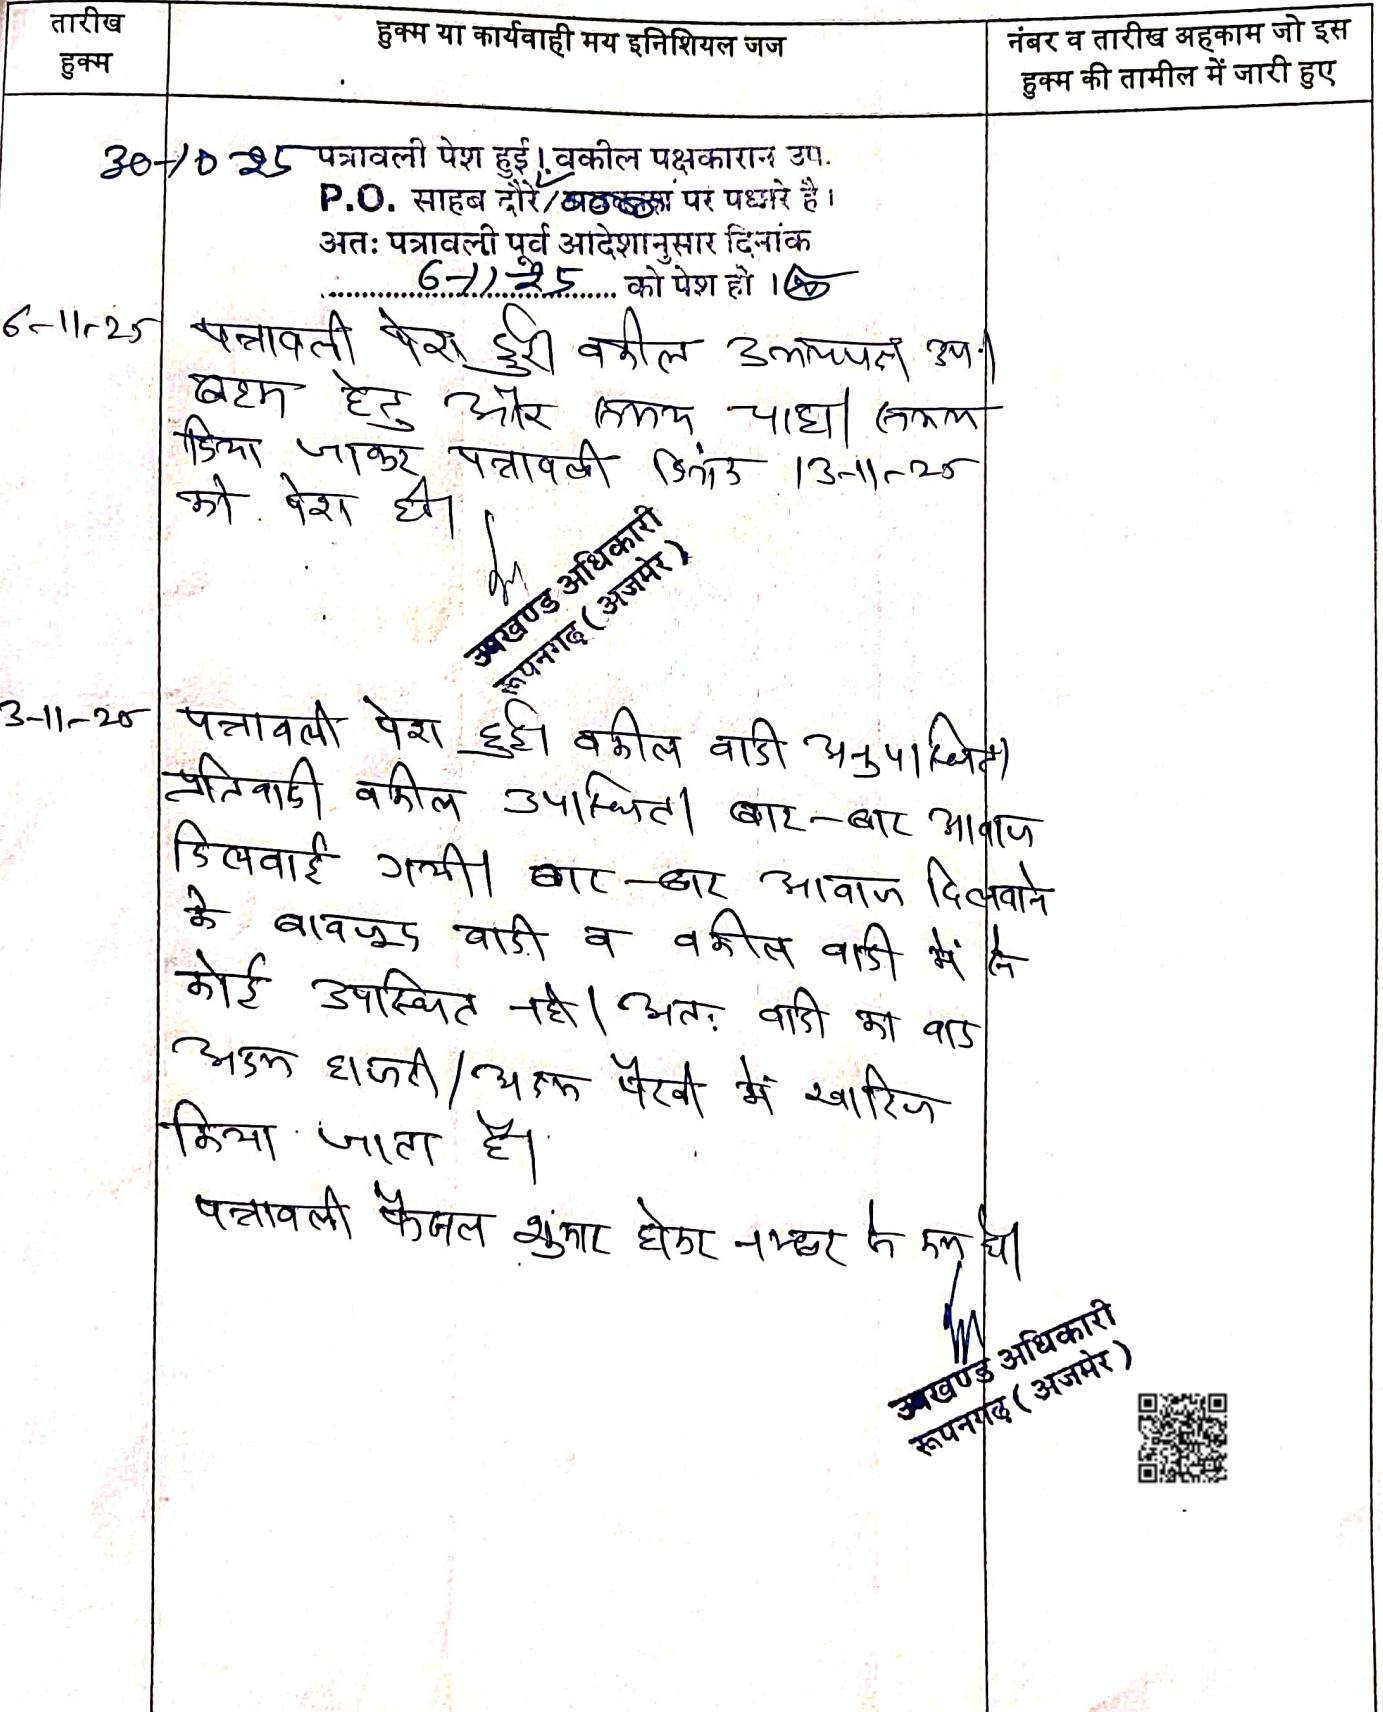 तारीख
हुक्म
हुक्म या कार्यवाही मय इनिशियल जज
नंबर व तारीख अहकाम जो इस
हुक्म की तामील में जारी हुए
30-10-25 पत्रावली पेश हुई। वकील पक्षकारान उप.
P.O. साहब दौरे/ पर पधारे है।
अतः पत्रावली पूर्व आदेशानुसार दिनांक
6-11-25 को पेश हो ।
6-11-25 पत्रावली पेश हुई वकील उभयपक्ष उप.।
बहस हेतु और समय चाहा। समय
दिया जाकर पत्रावली दिनांक 13-11-25
को पेश हो।
उपखण्ड अधिकारी
रूपनगढ़ (अजमेर)
3-11-25 पत्रावली पेश हुई। वकील वादी अनुपस्थित।
प्रतिवादी वकील उपस्थित। बार-बार आवाज
दिलवाई गयी। बार-बार आवाज दिलवाने
के बावजूद वादी व वकील वादी में से
कोई उपस्थित नही। अतः वादी का वाद
अदम हाजरी/अदम पैरवी में खारिज
किया जाता है।
पत्रावली फैसल शुमार होकर नम्बर से कम हो।
उपखण्ड अधिकारी
रूपनगढ़ (अजमेर)